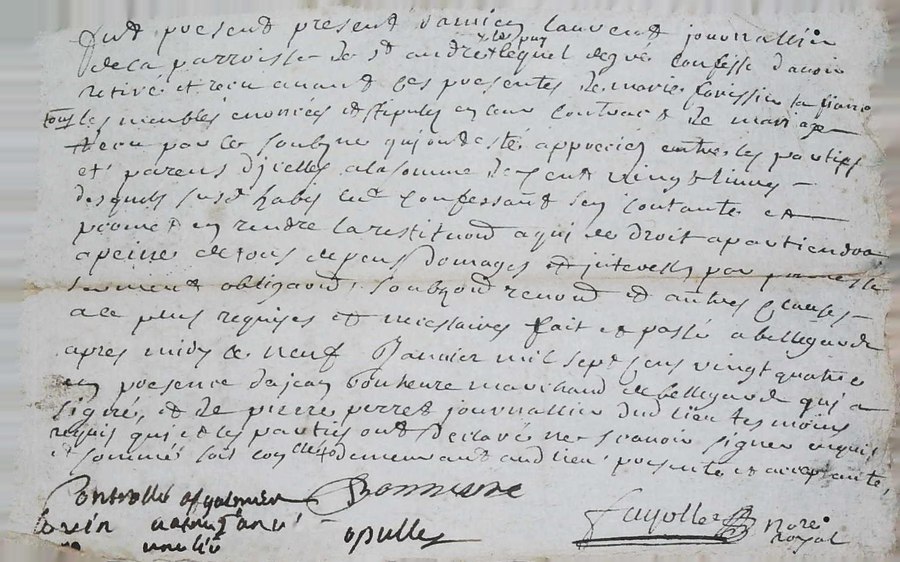 fut present present damien laurent journallier
le puy
de la parroisse de st andré lequel de gré confesse davoir
retiré et recu avant ces presentes de marie sa fame
tous les meubles enoncés et stipulés en leur contract de mariage
recu par le soubzné qui ont esté appreciés entre les parties
et parens dicelles a la somme de cent vingt livres
desquels susd habis led confessant sen contante et
promet en rendre la restitution a qui de droit apartiendra
a peine de tous depens domages et interests par promesse
serment obligaon, soubzon renond et autres clauses
a ce plus requises et necessaires fait et passé a bellegarde
apres midy ce neuf Janvier mil sept cens vingt quatre
en presence de jean bonheure marchand de bellegarde qui a
signé, et de pierre perret journallier dud lieu tesmoins
requis qui et les parties ont declaré ne scavoir signer enquis
et sommés demeurant aud lieu presente et acceptante,
Controllé a galmier Bonnerre
janvier
opulle
fayolle Nore
royal